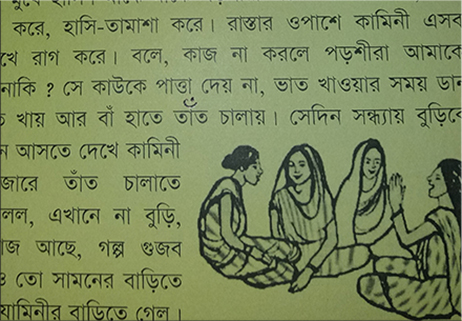 করে, হাসি-তামাশা করে। রাস্তার ওপাশে কামিনী এসব
খে রাগ করে। বলে, কাজ না করলে পড়শীরা আমাকে
নাকি ? সে কাউকে পাত্তা দেয় না, ভাত খাওয়ার সময় ডান
ত খায় আর বাঁ হাতে তাঁত চালায়। সেদিন সন্ধ্যায় বুড়িকে
ন আসতে দেখে কামিনী
জারে তাঁত চালাতে
লল, এখানে না বুড়ি,
াজ আছে, গল্প গুজব
ও তো সামনের বাড়িতে
যামিনীর বাড়িতে গেল।